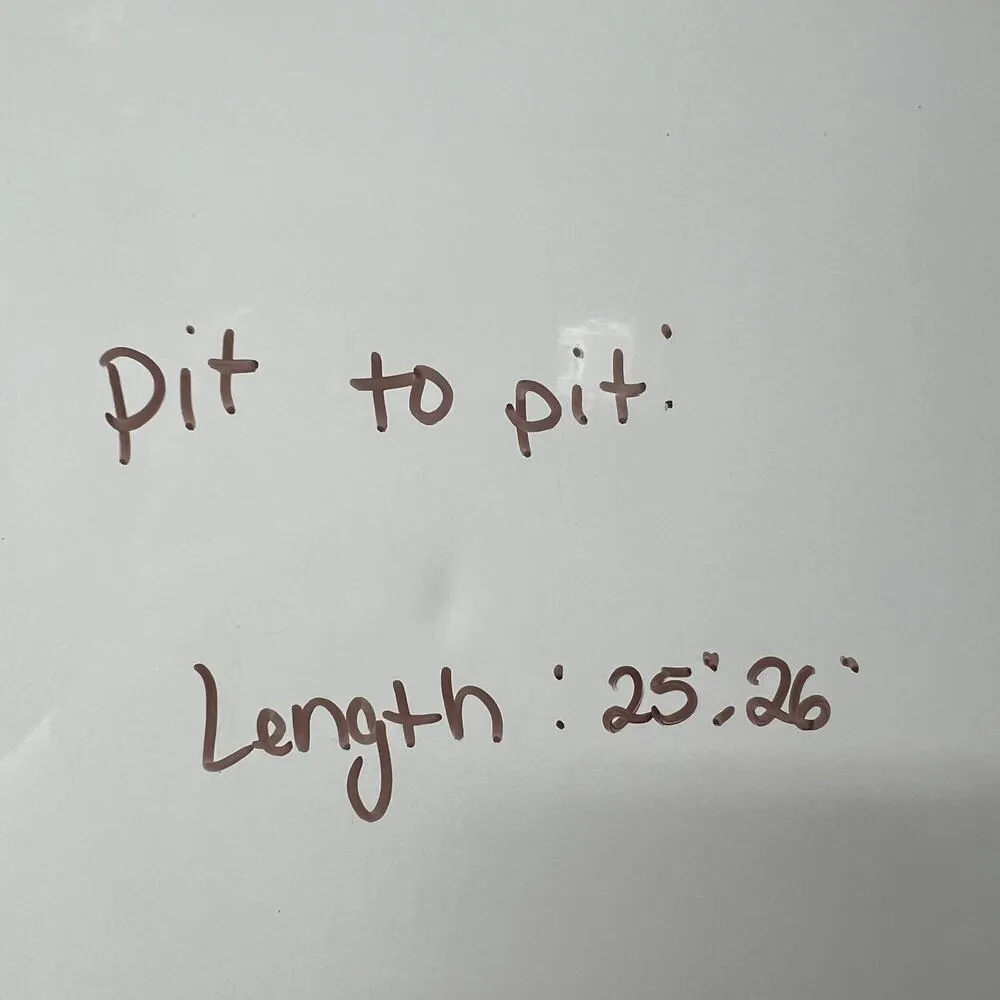 pit to pit:
Length: 25", 26"